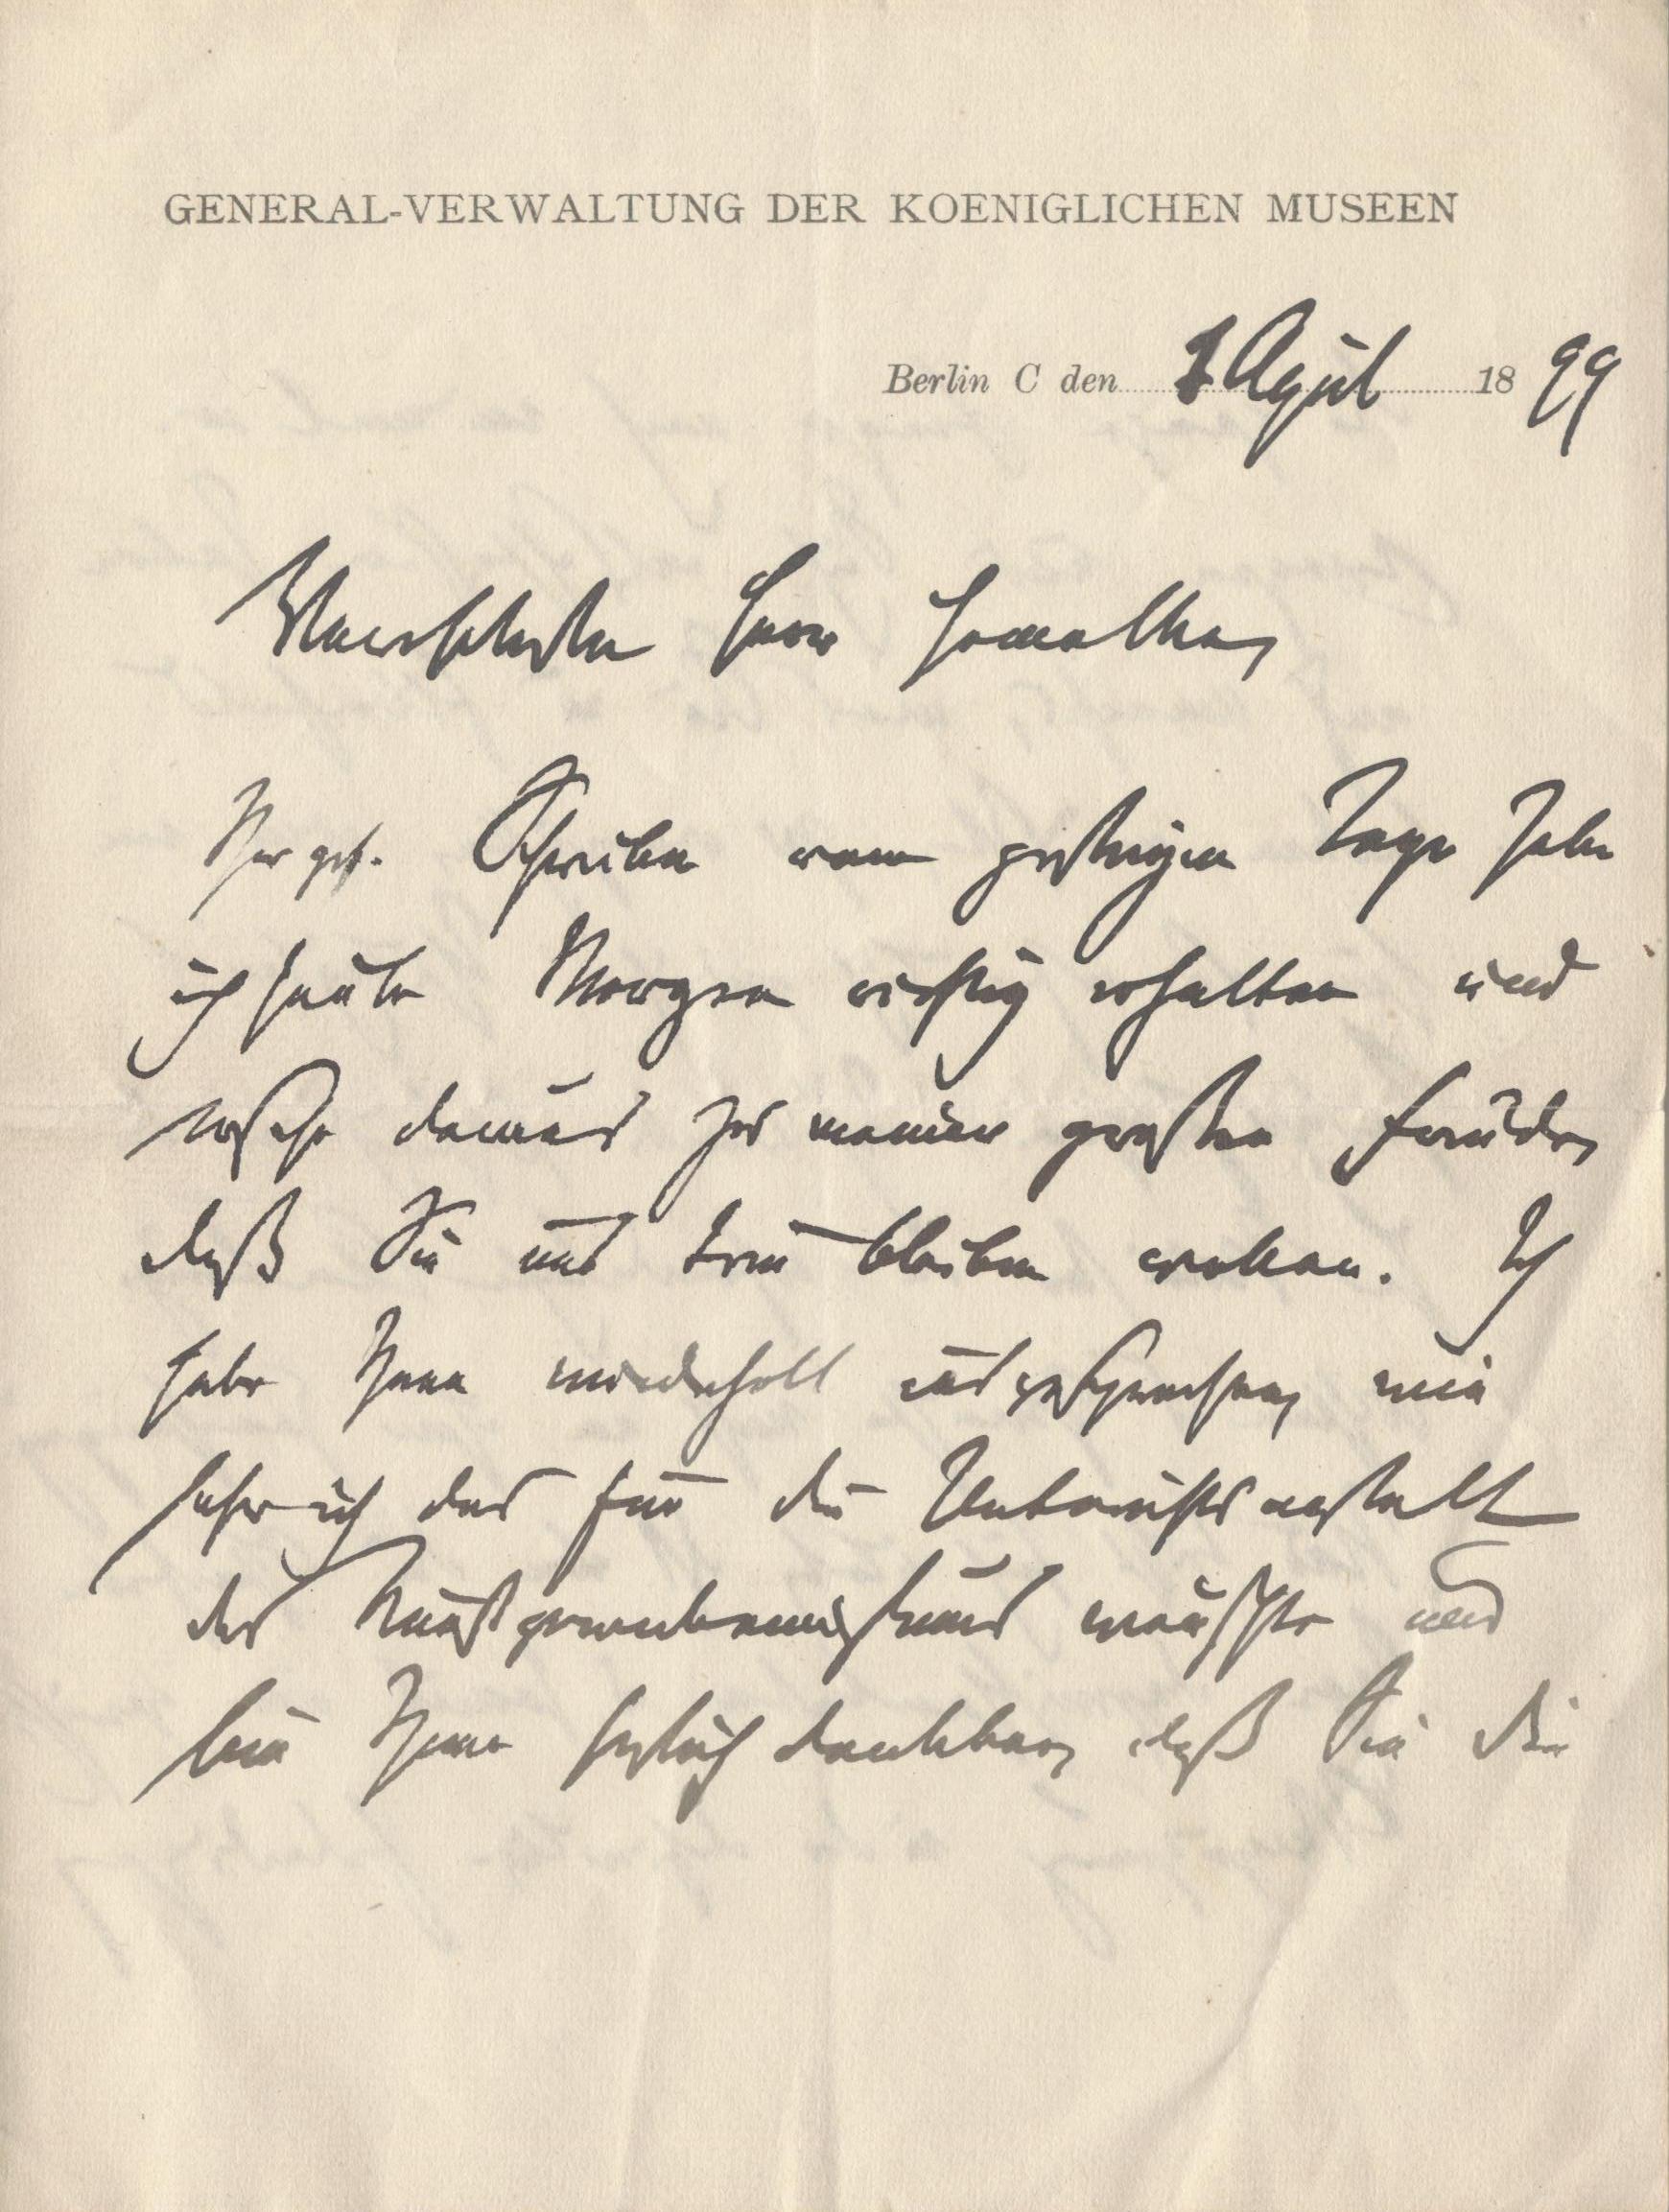 GENERAL-VERWALTUNG DER KOENIGLICHEN MUSEEN
Berlin C den 1 April 1899
Verehrtester Herr
Ihr gef. Schreiben vom gestrigen Tage habe
ich heute Morgen richtig erhalten und
ersehe daraus zu meiner großen Freude,
daß Sie uns treu bleiben wollen. Ich
habe Ihnen wiederholt ausgesprochen, wie
sehr ich das für die Unterrichtsanstalt
des Kunstgewerbemuseums wünschte und
bin Ihnen herzlich dankbar, daß Sie die